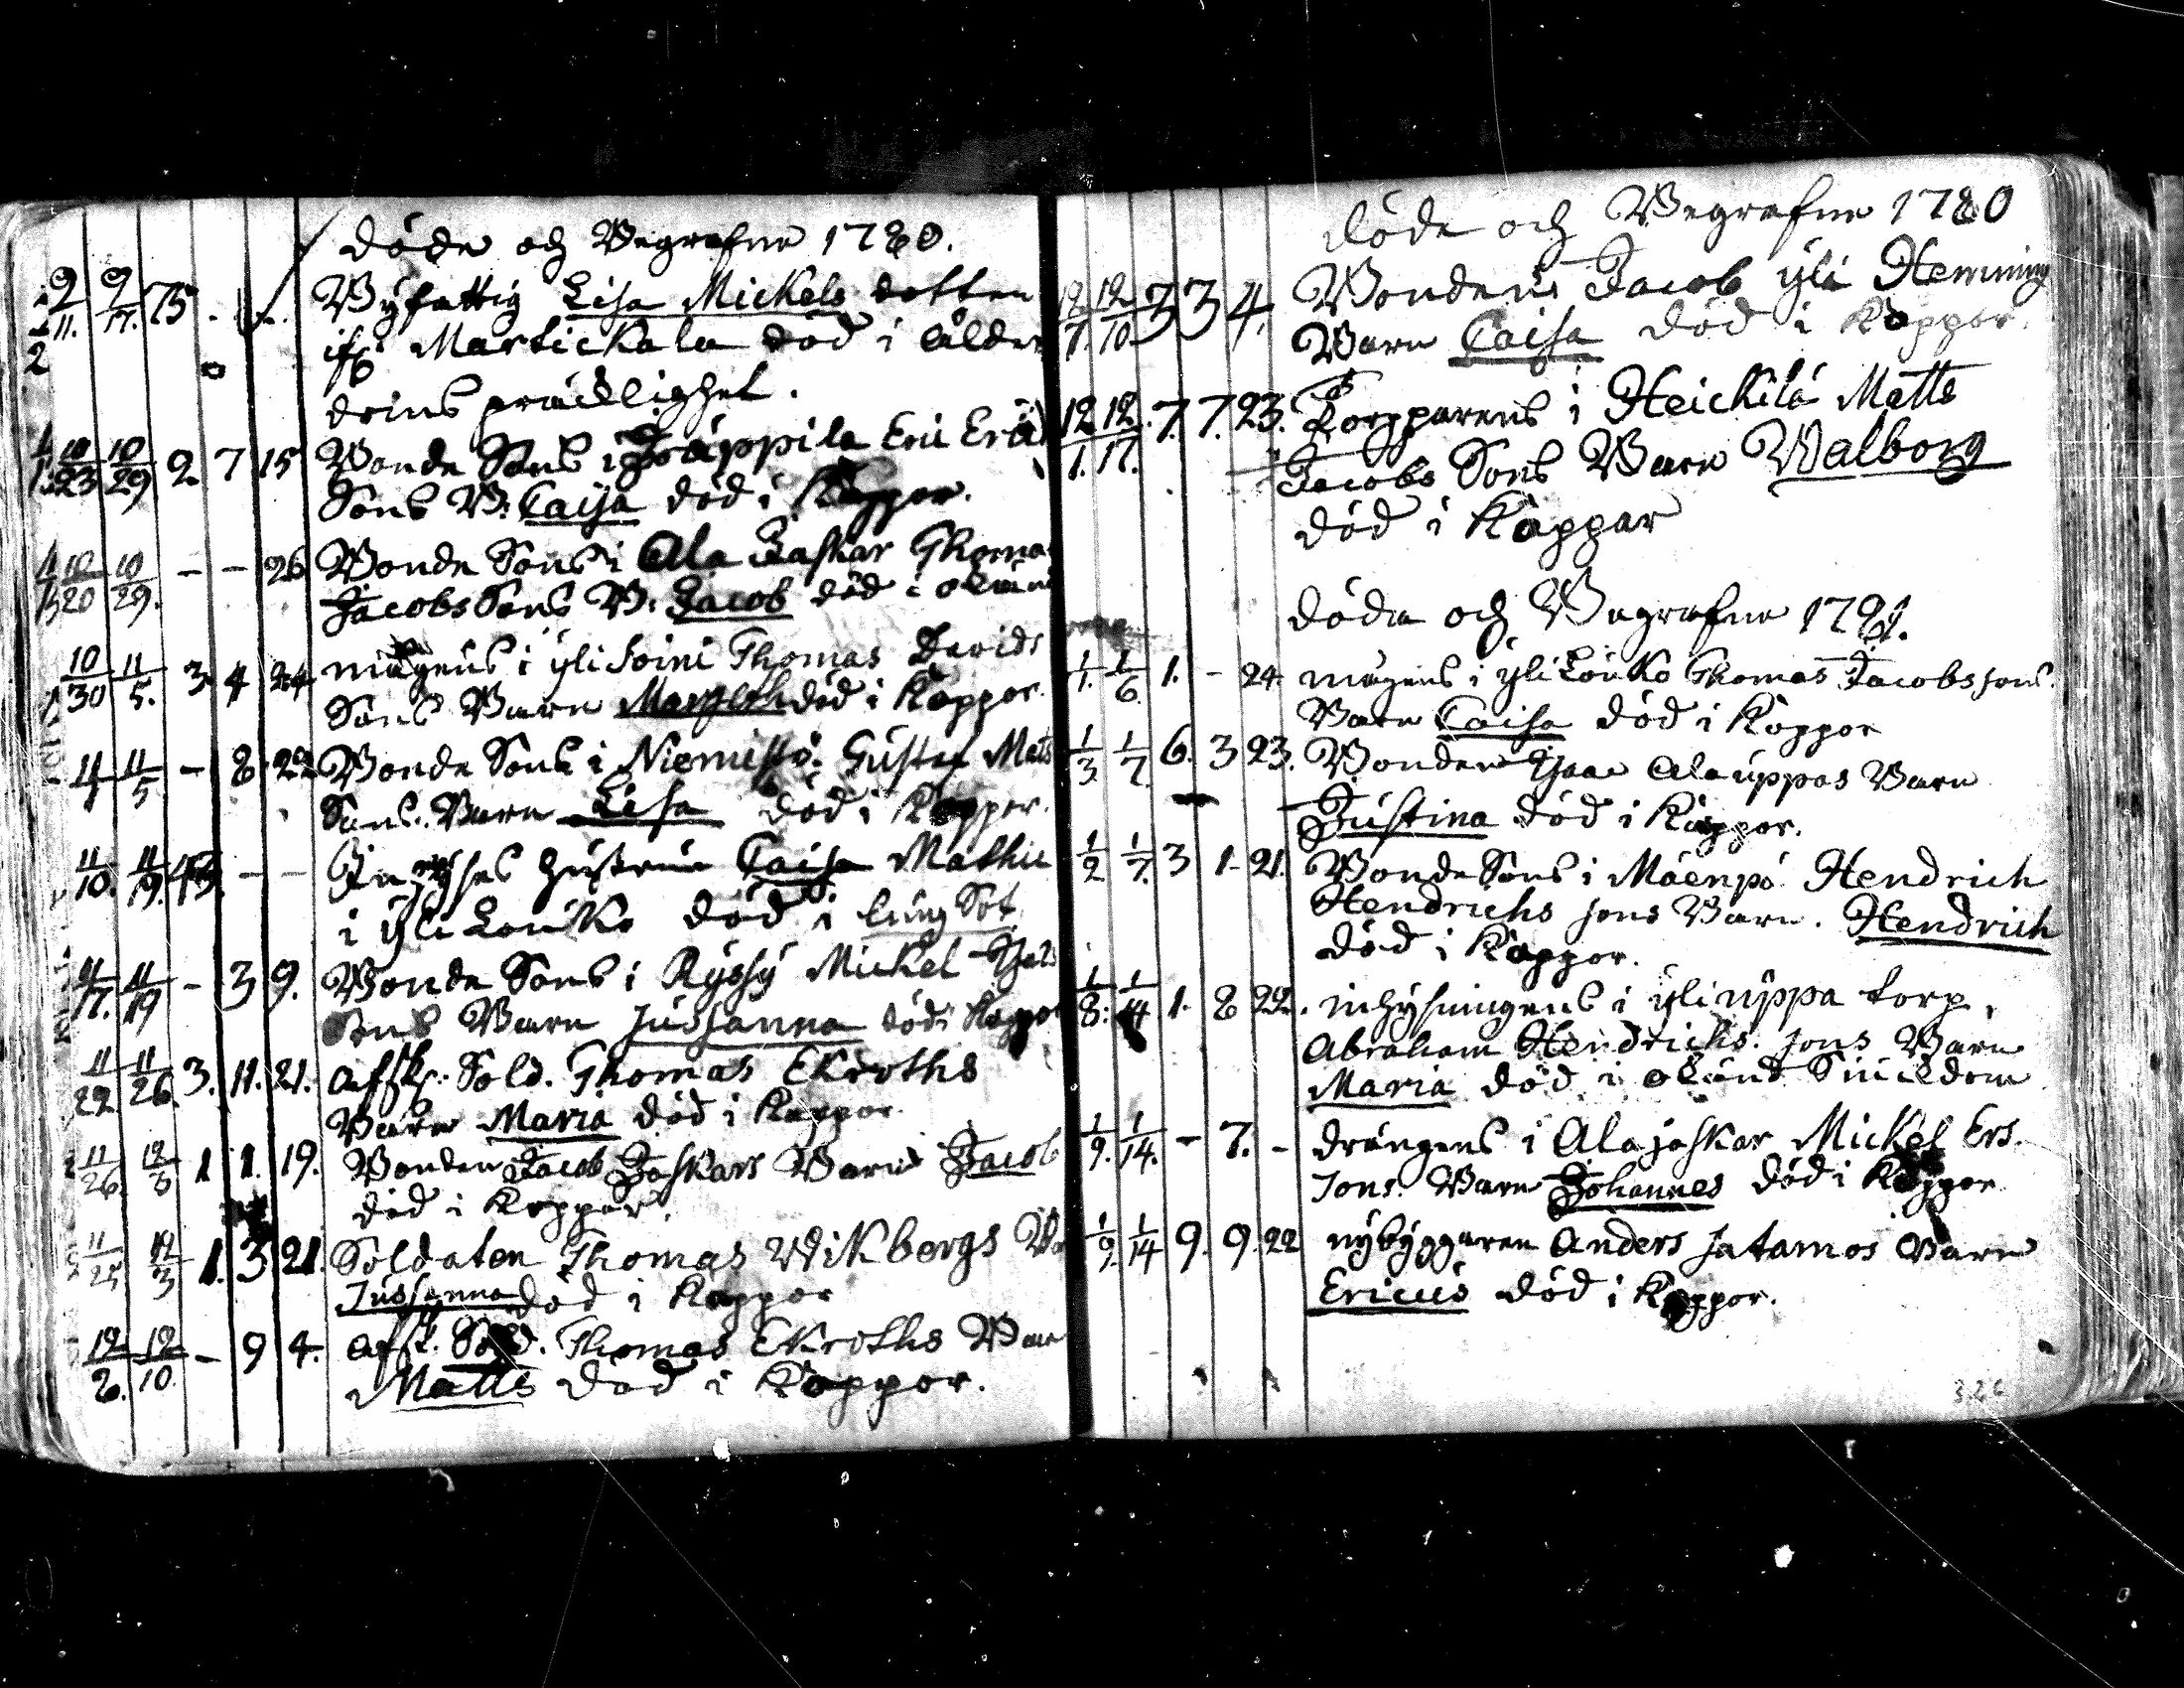 Döde och Begrafne 1780.
9/11. 9/17. 75 - - Byfattig Lisa Mickels dotter
ifr. Martickala död i ålder
doms bräcklighet.
10/23 10/29 2 7 15 Bonde Sons i Jäppilä Eric Eric
Sons B: Caisa död i Koppor.
10/20 10/29. - - 26 Bonde Sons i Ala Jaskar Thomas
Jacobs Sons B: Jacob död i okänd
10/30 11/5. 3 4 24 mågens i yli Soini Thomas Davids
Sons Barn Margeth död i Koppor.
11/1 11/5 - 8 22 Bonde Sons i Niemistö Gustaf Mats
Sons Barn Lisa död i Koppor.
11/10. 11/19. - - Hustru Caisa Mathie
i yli Louko död i lungSot.
11/17. 11/19 - 3 9. Bonde Sons i Ryssy Mickel
Sons Barn Sussanna död i Koppor
11/22 11/26. 3. 11. 21. Afsk. Sold. Thomas Ekroths
Barn Maria död i Koppor.
11/26 12/3 1 1. 19. Bonden Jacob Jaskars Barn Jacob
död i Koppor.
11/25 12/3 1. 3 21. Soldaten Thomas Wikbergs
Sussanna död i Koppor
12/2. 12/10. - 9 4. Afsk. Sold. Thomas Ekroths Barn
Matts död i Koppor.
Döde och Begrafne 1780
12/7. 12/10 3 3 4. Bondens Jacob yli Hemming
Barn Caisa död i Koppor.
12/1. 12/17. 7. 7. 23. Torpparens i Heickilä Matts
Jacobs Sons Barn Walborg
död i Koppar
Döde och Begrafne 1781.
1/1. 1/6. 1. - 24. mågens i yli Louko Thomas Jacobs sons.
Barn Caisa död i Koppor
1/3 1/7 6. 3 23. Bonden Isaac Alauppas Barn
Justina död i Koppor.
1/2 1/7. 3 1. 21. Bonde Sons i Mäenpä Hendrich
Hendrichs sons Barn. Hendrich
död i Koppor.
1/8. 1/14 1. 8 22. inhysningens i yliuppa torp,
Abraham Hendrichs. sons Barn
Maria död i okänd Siuckdom
1/9. 1/14. - 7. - drängens i Alajaskar Mickel Ers.
sons. Barn Johannes död i Koppor
1/9. 1/14 9. 9. 22 nybyggaren Anders Satamos Barn
Ericus död i Koppor.